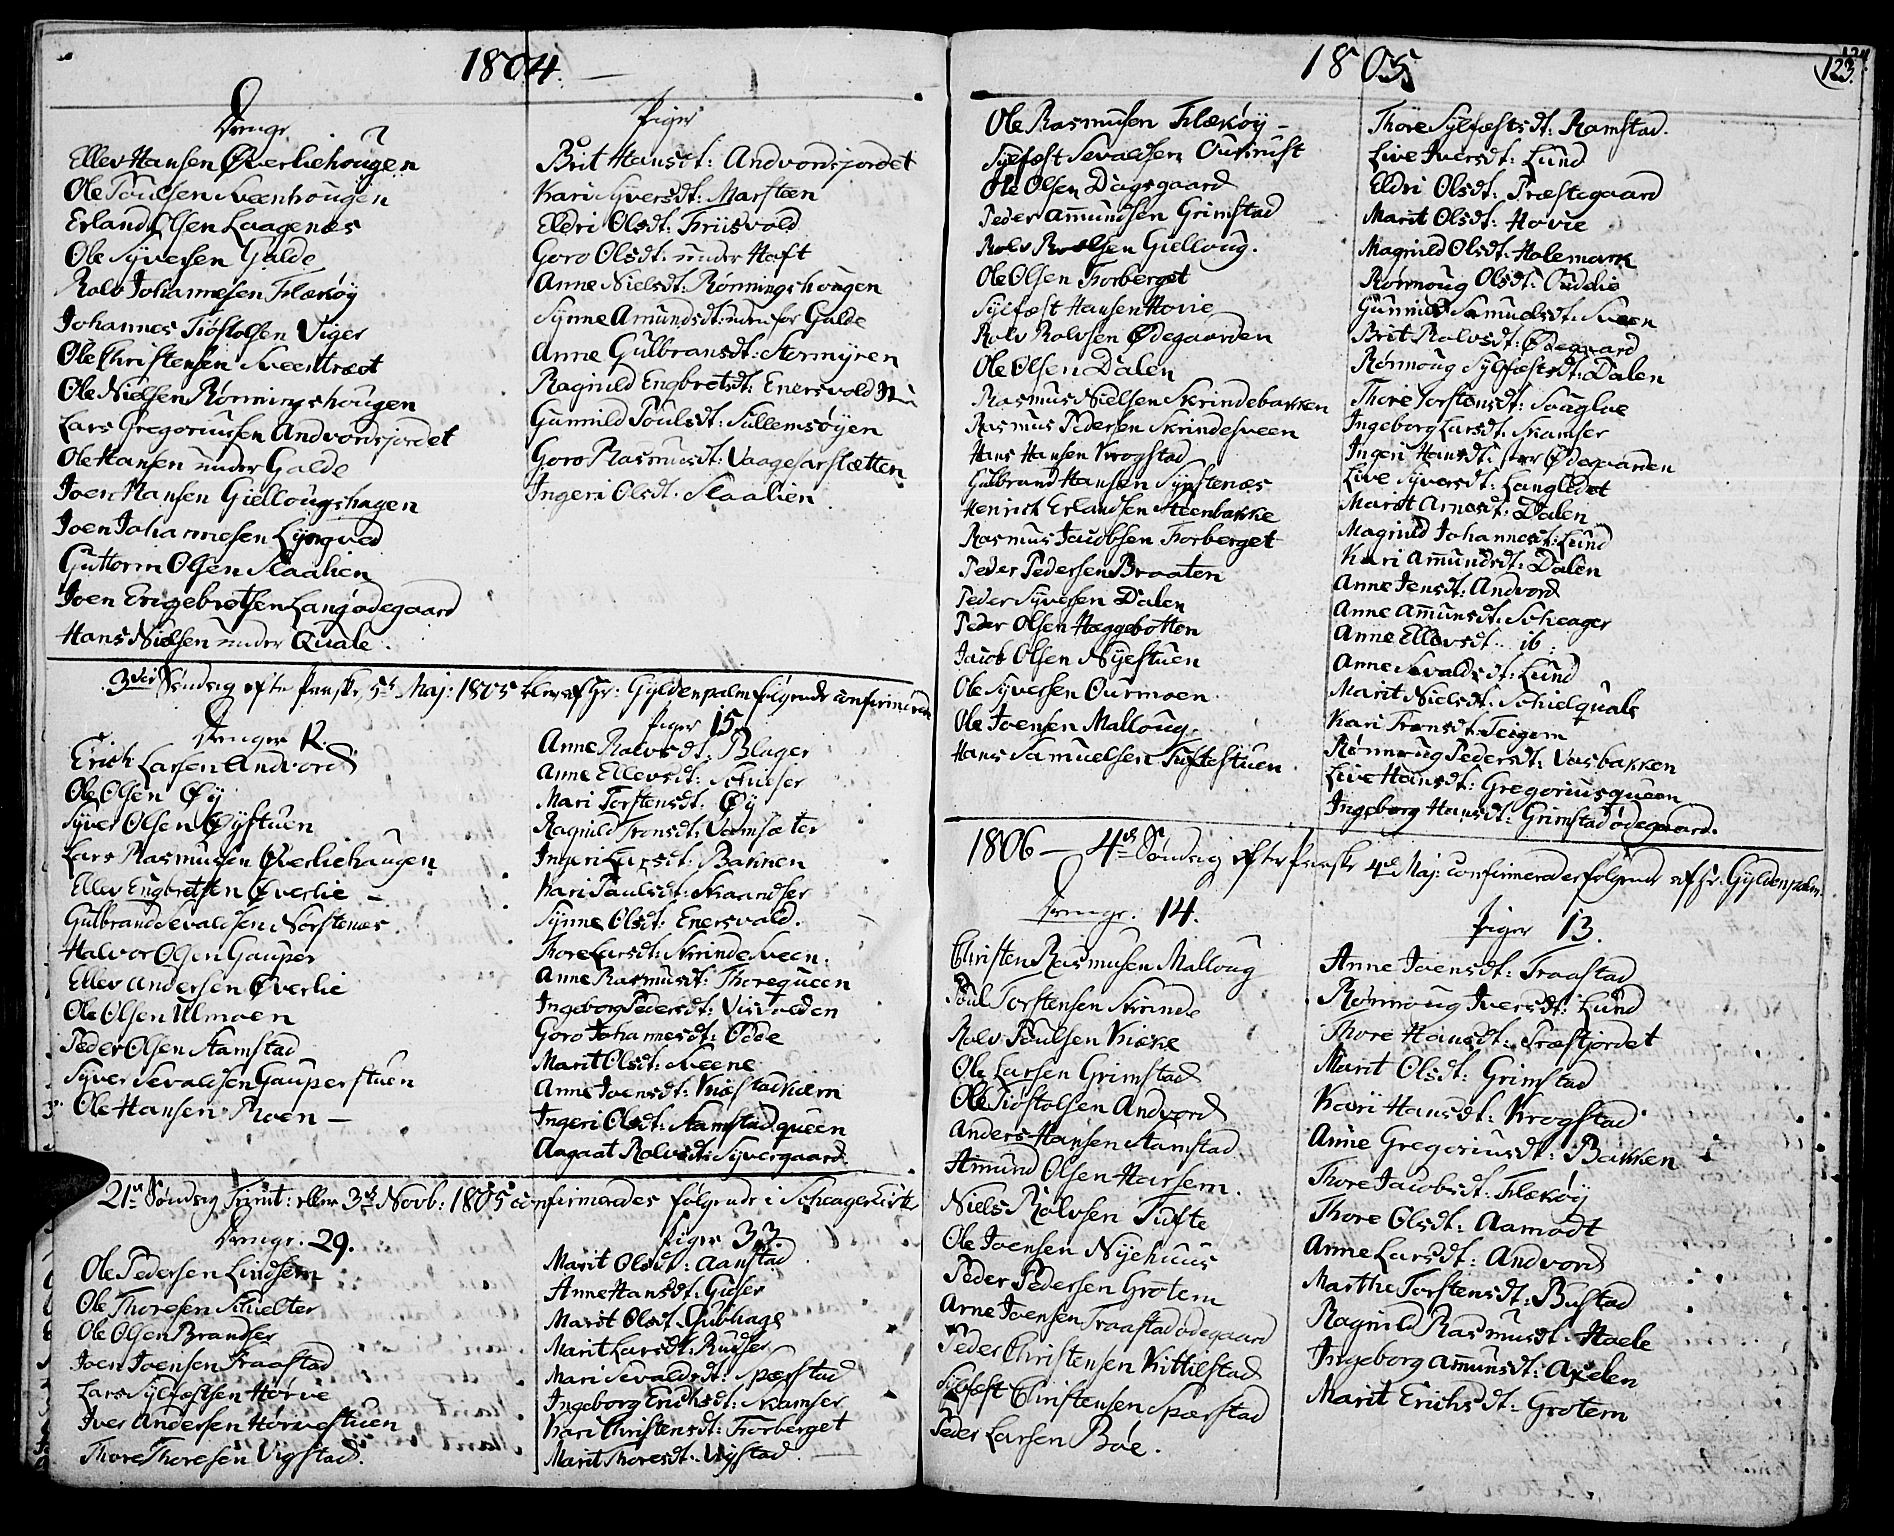 1804
Drenge
Ellev Hansen Øverliehougen
Ole Poulsen Sveenhougen
Erland Olsen Laagenæs
Ole Syversen Galde
Rolv Johannesen Flækøy
Johannes Tiøstolsen Viger
Ole Christensen Sveettræet
Ole Nielsen Rønningshougen
Lars Gregoriussen Andvordsjordet
Ole Hansen under Galde
Joen Hansen Giellougshagen
Joen Johannesen Lyngved
Guttorm Olsen Slaalien
Joen Engebretsen Langødegaard
Hans Nielsen under Quale
Piger
Brit Hansdt: Andvordsjordet
Kari Syversdt: Marsteen
Eldri Olsdt: Friisvold
Goro Olsdt: under Hoft
Anne Nielsdt: Rønningshougen
Synne Amundsdt: nden for Galde
Anne Gulbransdt: Stormyren
Ragnild Engbretsdt: Enersvold
Gunnild Poulsdt: Sullemsøyen
Goro Rasmusdt: Vaagesarslætten
Ingeri Olsdt: Slaalien
3die Søndag efter Paaske, 5te Maj: 1805 blev af Hr: Gyldenpalm følgende confirmered
Drenge 12.
Erich Larsen Andvord
Ole Olsen Øy
Syver Olsen Øystuen
Lars Rasmusen Øverliehaugen
Ellev Engbretsen Øverlie
Gulbrand Sevaldsen Norstenæs
Halvor Olsen Gauper
Ellev Andersen Øverlie
Ole Olsen Ulmoen
Peder Olsen Stamstad
Syver Sevaldsen Gauperstuen
Ole Hansen Moen
Piger 15.
Anne Rolvsdt: Blager
Anne Ellevsdt:
Mari Torstensdt: Øy
Ragnild Tronsdt: Vamsæter
Ingeri Larsdt: Bakken
Kari Paulsdt: Skamser
Synne Olsdt: Enersvold.
Thore Larsdt: Skrindesveen
Anne Rasmusdt: Thorequeen
Ingeborg Pedersdt: Visvolden
Goro Johannesdt: Odde
Marit Olsdt: Sveene
Anne Joensdt:
Ingeri Olsdt: Stamstadqueen
Aagaat Rolvsdt: Syvergaard
21de Søndag Trinit: eller 3die Novb: 1805 confirmeredes følgende i Scheager Kirke
Drenge. 29.
Ole Pedersen Lindsem
Ole Thoresen
Ole Olsen Brandser
Joen Joensen Traastad
Lars Sylfæstsen Hørve
Iver Andersen Hørvestuen
Thore Thoresen Vigstad
Piger 33.
Marit Olsdt: Aanstad
Anne Hansdt: Giser
Marit Olsdt: Gubhage
Marit Larsdt: Rudser
Mari Sevaldsdt: Spærstad
Ingeborg Erichsdt: Skamser
Kari Christensdt: Forberget
Marit Thoresdt: Vigstad
1805
123
Ole Rasmusen Flækøy
Sylfæst Sevaldsen Ourust
Ole Olsen Dagsgaard
Peder Amundsen Grimstad
Rolv Rolvsen Gielloug.
Ole Olsen Forberget
Sylfæst Hansen Hovie
Rolv Rolvsen Ødegaarden
Ole Olsen Dalen
Rasmus Nielsen Skrindebakken
Rasmus Pedersen Skrindesveen
Hans Hansen Krogstad
Gulbrand Hansen Synstenæs
Henrich Erlandsen Steenbakke
Rasmus Jacobsen Forberget
Peder Pedersen Braaten
Peder Syversen Dalen
Peder Olsen Hæggebotten
Jacob Olsen Nyestuen
Ole Syversen Ourmoen
Ole Joensen Malloug.
Hans Samuelsen Tuftestuen
Thore Sylfæstsdt: Ramstad.
Live Iversdt: Lund
Eldri Olsdt: Præstegaard
Marit Olsdt: Hovie
Magnild Olsdt: Holemark
Rønnoug Olsdt: Ouddie
Gunnild Samuelsdt: Sveen
Brit Rolvsdt: Ødegaard
Rønnoug Sylfæstsdt: Dalen
Thore Torstensdt: Souglve
Ingeborg Larsdt: Skamser
Ingeri Hansdt: Ødegaarden
Live Syversdt: Langledet
Marit Arnesdt: Dalen
Magnild Johannesdt: Lund
Kari Amundsdt: Dalen
Anne Jensdt: Andvord
Anne Amunsdt: Scheager
Anne Ellevsdt: ib:
Anne Sevaldsdt: Lund
Marit Nielsdt: Schielquale
Kari Tronsdt: Teigem
Rønnoug Pedersdt: Vasbakken
Live Hansdt: Gregoriusqueen
Ingeborg Hansdt: Grimstadødegaard.
1806 — 4de Søndag efter Paaske 4de Maj: confirmerades følgende af Hr: Gyldenpalm
Drenge. 14.
Christen Rasmusen Malloug
Poul Torstensen Skrinde
Rolv Poulsen Kiæke
Ole Larsen Grimstad
Ole Tiøstolsen Andvord
Anders Hansen Stamstad
Amund Olsen Harsem.
Niels Rolvsen Tufte
Ole Joensen Nyehuus
Peder Pedersen Grotem
Arne Joensen Traastadødegaard
Peder Christensen Kittilstad
Sylfæst Christensen Spærstad
Peder Larsen Bøe.
Piger 13.
Anne Joensdt: Traastad
Rønnoug Iversdt: Lund
Thore Hansdt: Præstjordet
Marit Olsdt: Grimstad
Kari Hansdt: Krogstad
Anne Gregoriusdt: Bakken
Thore Jacobsdt: Flækøy
Thore Olsdt: Aamodt
Anne Larsdt: Andvord
Marthe Torstensdt: Bustad
Ragnild Rasmusdt: Hoele
Ingeborg Amunsdt: Axelen
Marit Erichsdt: Grotem